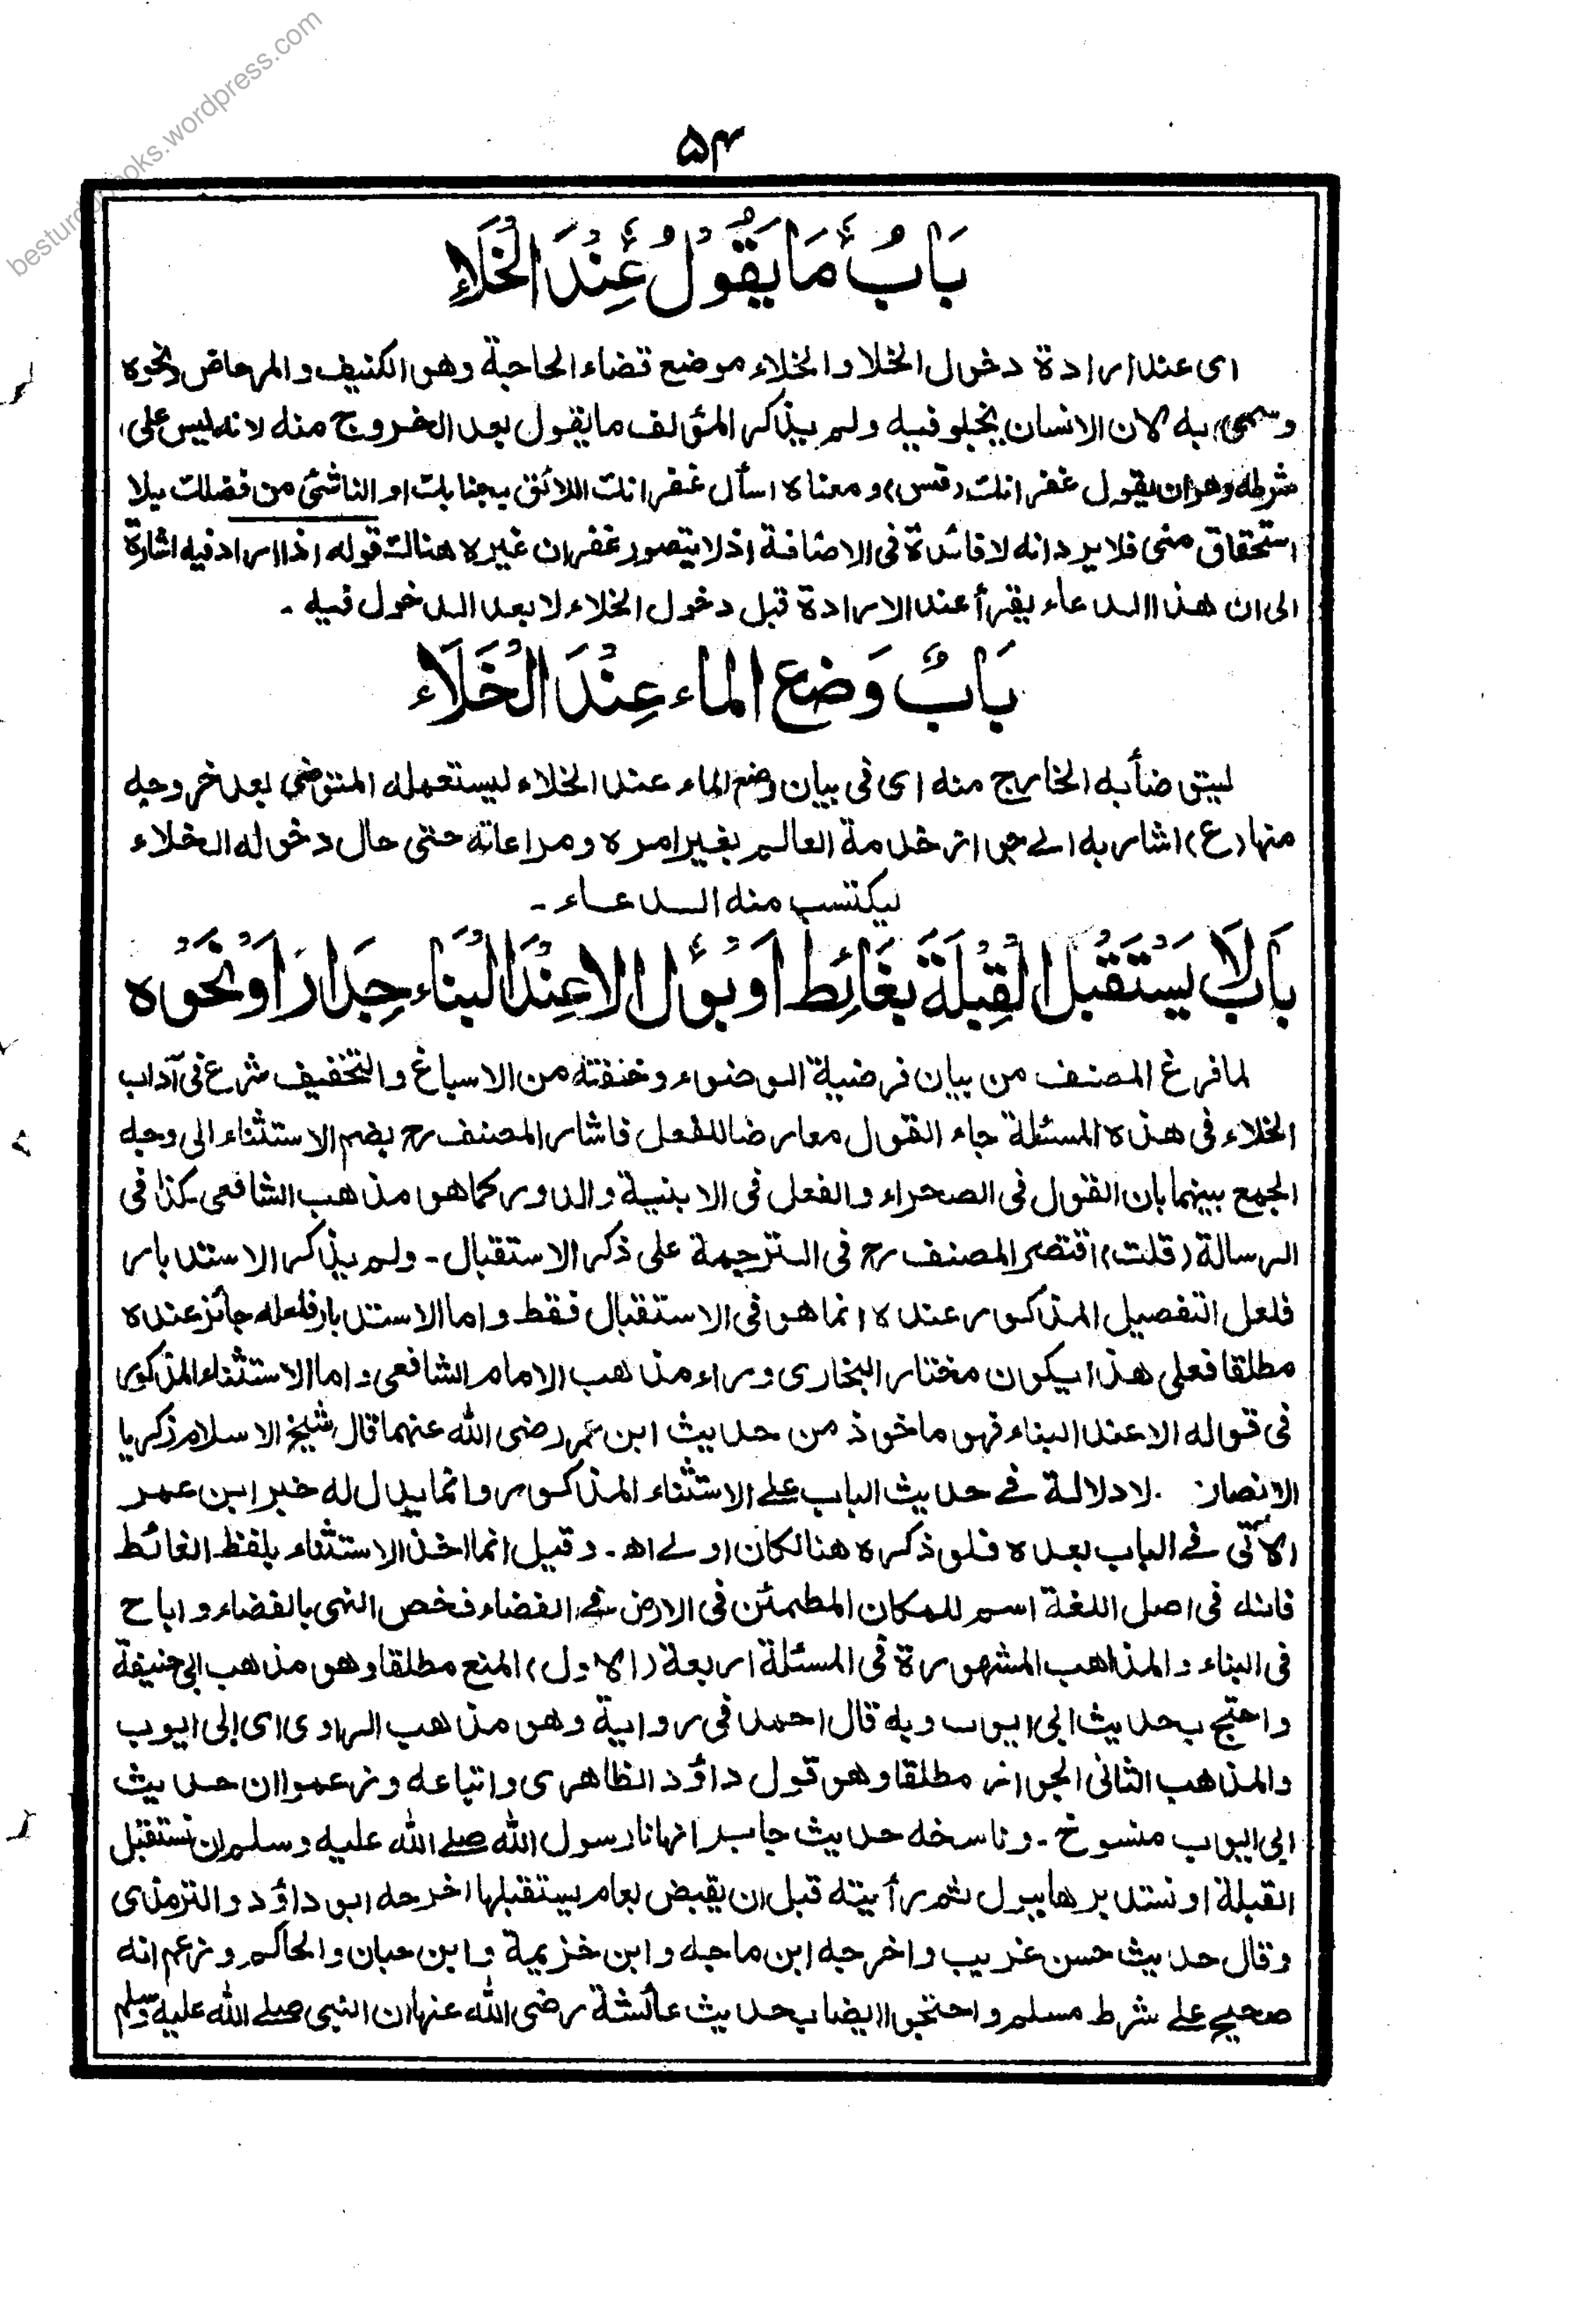 besturdubooks.wordpress.com
۵۴
بَابُ مَا يَقُوْلُ عِنْدَ الْخَلَاءِ
ای عند ارادة دخول الخلا والخلاء موضع قضاء الحاجة وهو الكنيف والمرحاض ونحوه
وسمی به لان الانسان يخلو فيه ولم يذكر المؤلف ما يقول بعد الخروج منه لانه ليس على
شرطه وهو ان يقول غفرانك (قس) ومعناه اسأل غفرانك اللائق بجنابك او الناشئ من فضلك بلا
استحقاق منی فلا يرد انه لا فائدة فی الاضافة اذ لا يتصور غفران غيره هنالك قوله اذا اراد فيه اشارة
الی ان هذا الدعاء يقرأ عند الارادة قبل دخول الخلاء لا بعد الدخول فيه ۔
بَابُ وَضع الماء عِنْدَ الْخَلَاء
ليتوضأ به الخارج منه ای فی بيان وضع الماء عند الخلاء ليستعمله المتوضی بعد خروجه
منها (ع) اشار به الے جواز خدمة العالم بغير امره ومراعاته حتی حال دخوله الخلاء
ليكتسب منه الدعاء ۔
بَابُ لَا يَسْتَقْبِل الْقِبْلَةَ بِغَائِط اَوْ بَوْل الا عِنْدَ الْبِنَاء جِدَار اَوْ نَحْوِه
لما فرغ المصنف من بيان فرضية الوضوء وخفته من الاسباغ والتخفيف شرع فی آداب
الخلاء فی هذه المسئلة جاء القول معارضا للفعل فاشار المصنف رح بضم الاستثناء الی وجه
الجمع بينهما بان القول فی الصحراء والفعل فی الابنية والدور كما هو مذهب الشافعی كذا فی
الرسالة (قلت) اقتصر المصنف رح فی الترجمة على ذكر الاستقبال ۔ ولم يذكر الاستدبار
فلعل التفصيل المذكور عنده انما هو فی الاستقبال فقط واما الاستدبار فلعله جائز عنده
مطلقا فعلى هذا يكون مختار البخاری وراء مذهب الامام الشافعی واما الاستثناء المذكور
فی قوله الا عند البناء فهو ماخوذ من حديث ابن عمر رضی الله عنهما قال شيخ الاسلام زكريا
الانصار . لا دلالة فے حديث الباب علے الاستثناء المذكور وانما يدل له خبر ابن عمر
الآتی فے الباب بعده فلو ذكره هنا لكان اولے اھ ۔ وقيل انما اخذ الاستثناء بلفظ الغائط
فانه فی اصل اللغة اسم للمكان المطمئن فی الارض فے الفضاء فخص النهی بالفضاء واباح
فی البناء والمذاهب المشهورة فی المسئلة اربعة (الاول) المنع مطلقا وهو مذهب ابی حنيفة
واحتج بحديث ابی ايوب وبه قال احمد فی رواية وهو مذهب الراوی ای ابی ايوب
والمذهب الثانی الجواز مطلقا وهو قول داؤد الظاهری واتباعه وزعموا ان حديث
ابی ايوب منسوخ ۔ وناسخه حديث جابر انهانا رسول الله صلے الله عليه وسلم ان نستقبل
القبلة او نستدبرها ببول ثم رأيته قبل ان يقبض بعام يستقبلها اخرجه ابو داؤد والترمذی
وقال حديث حسن غريب واخرجه ابن ماجه وابن خزيمة وابن حبان والحاكم وزعم انه
صحيح علے شرط مسلم واحتجوا ايضا بحديث عائشة رضی الله عنها ان النبی صلے الله عليه وسلم